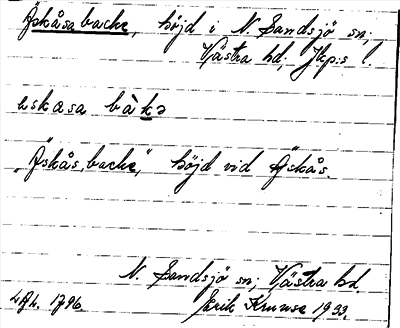 Åskåsa backe, höjd i N. Sandsjö sn;
Västra hd; Jkp:s l.
bàkə
"Åskås backe," höjd vid Åskås.
N. Sandsjö sn; Västra hd.
1796. Erik Krunse 1933.